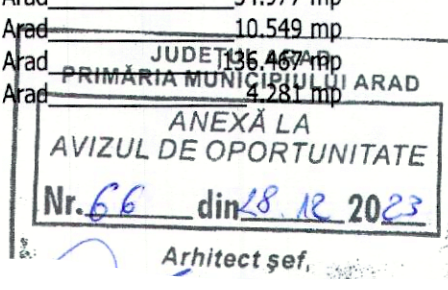 Arad 34.977 mp
Arad 10.549 mp
Arad 136.467 mp
Arad 4.281 mp
JUDEȚUL ARAD
PRIMĂRIA MUNICIPIULUI ARAD
ANEXĂ LA
AVIZUL DE OPORTUNITATE
Nr. 66 din 28.12.2023
Arhitect șef,